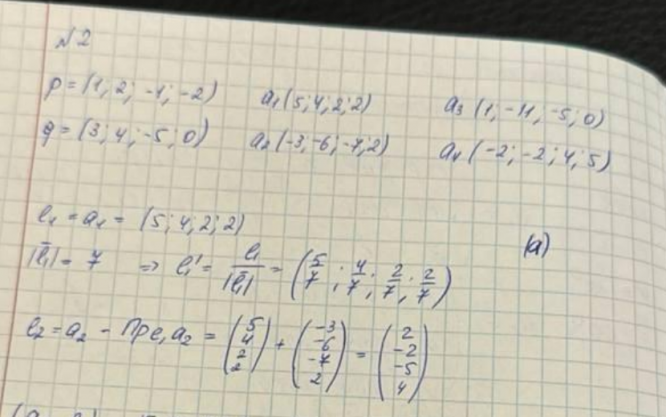 №2
p=(1; 2; -1; -2) a₁(5; 4; 2; 2) a₃(1; -11; -5; 0)
q=(3; 4; -5; 0) a₂(-3; -6; -7; 2) a₄(-2; -2; 4; 5)
l₁=a₁=(5; 4; 2; 2) (a)
|l̄₁|=7 => l₁'= l₁/|l̄₁| = (5/7; 4/7; 2/7; 2/7)
l₂=a₂ - Прe₁a₂ = (5 4 2 2) + (-3 -6 -7 2) = (2 -2 -5 4)